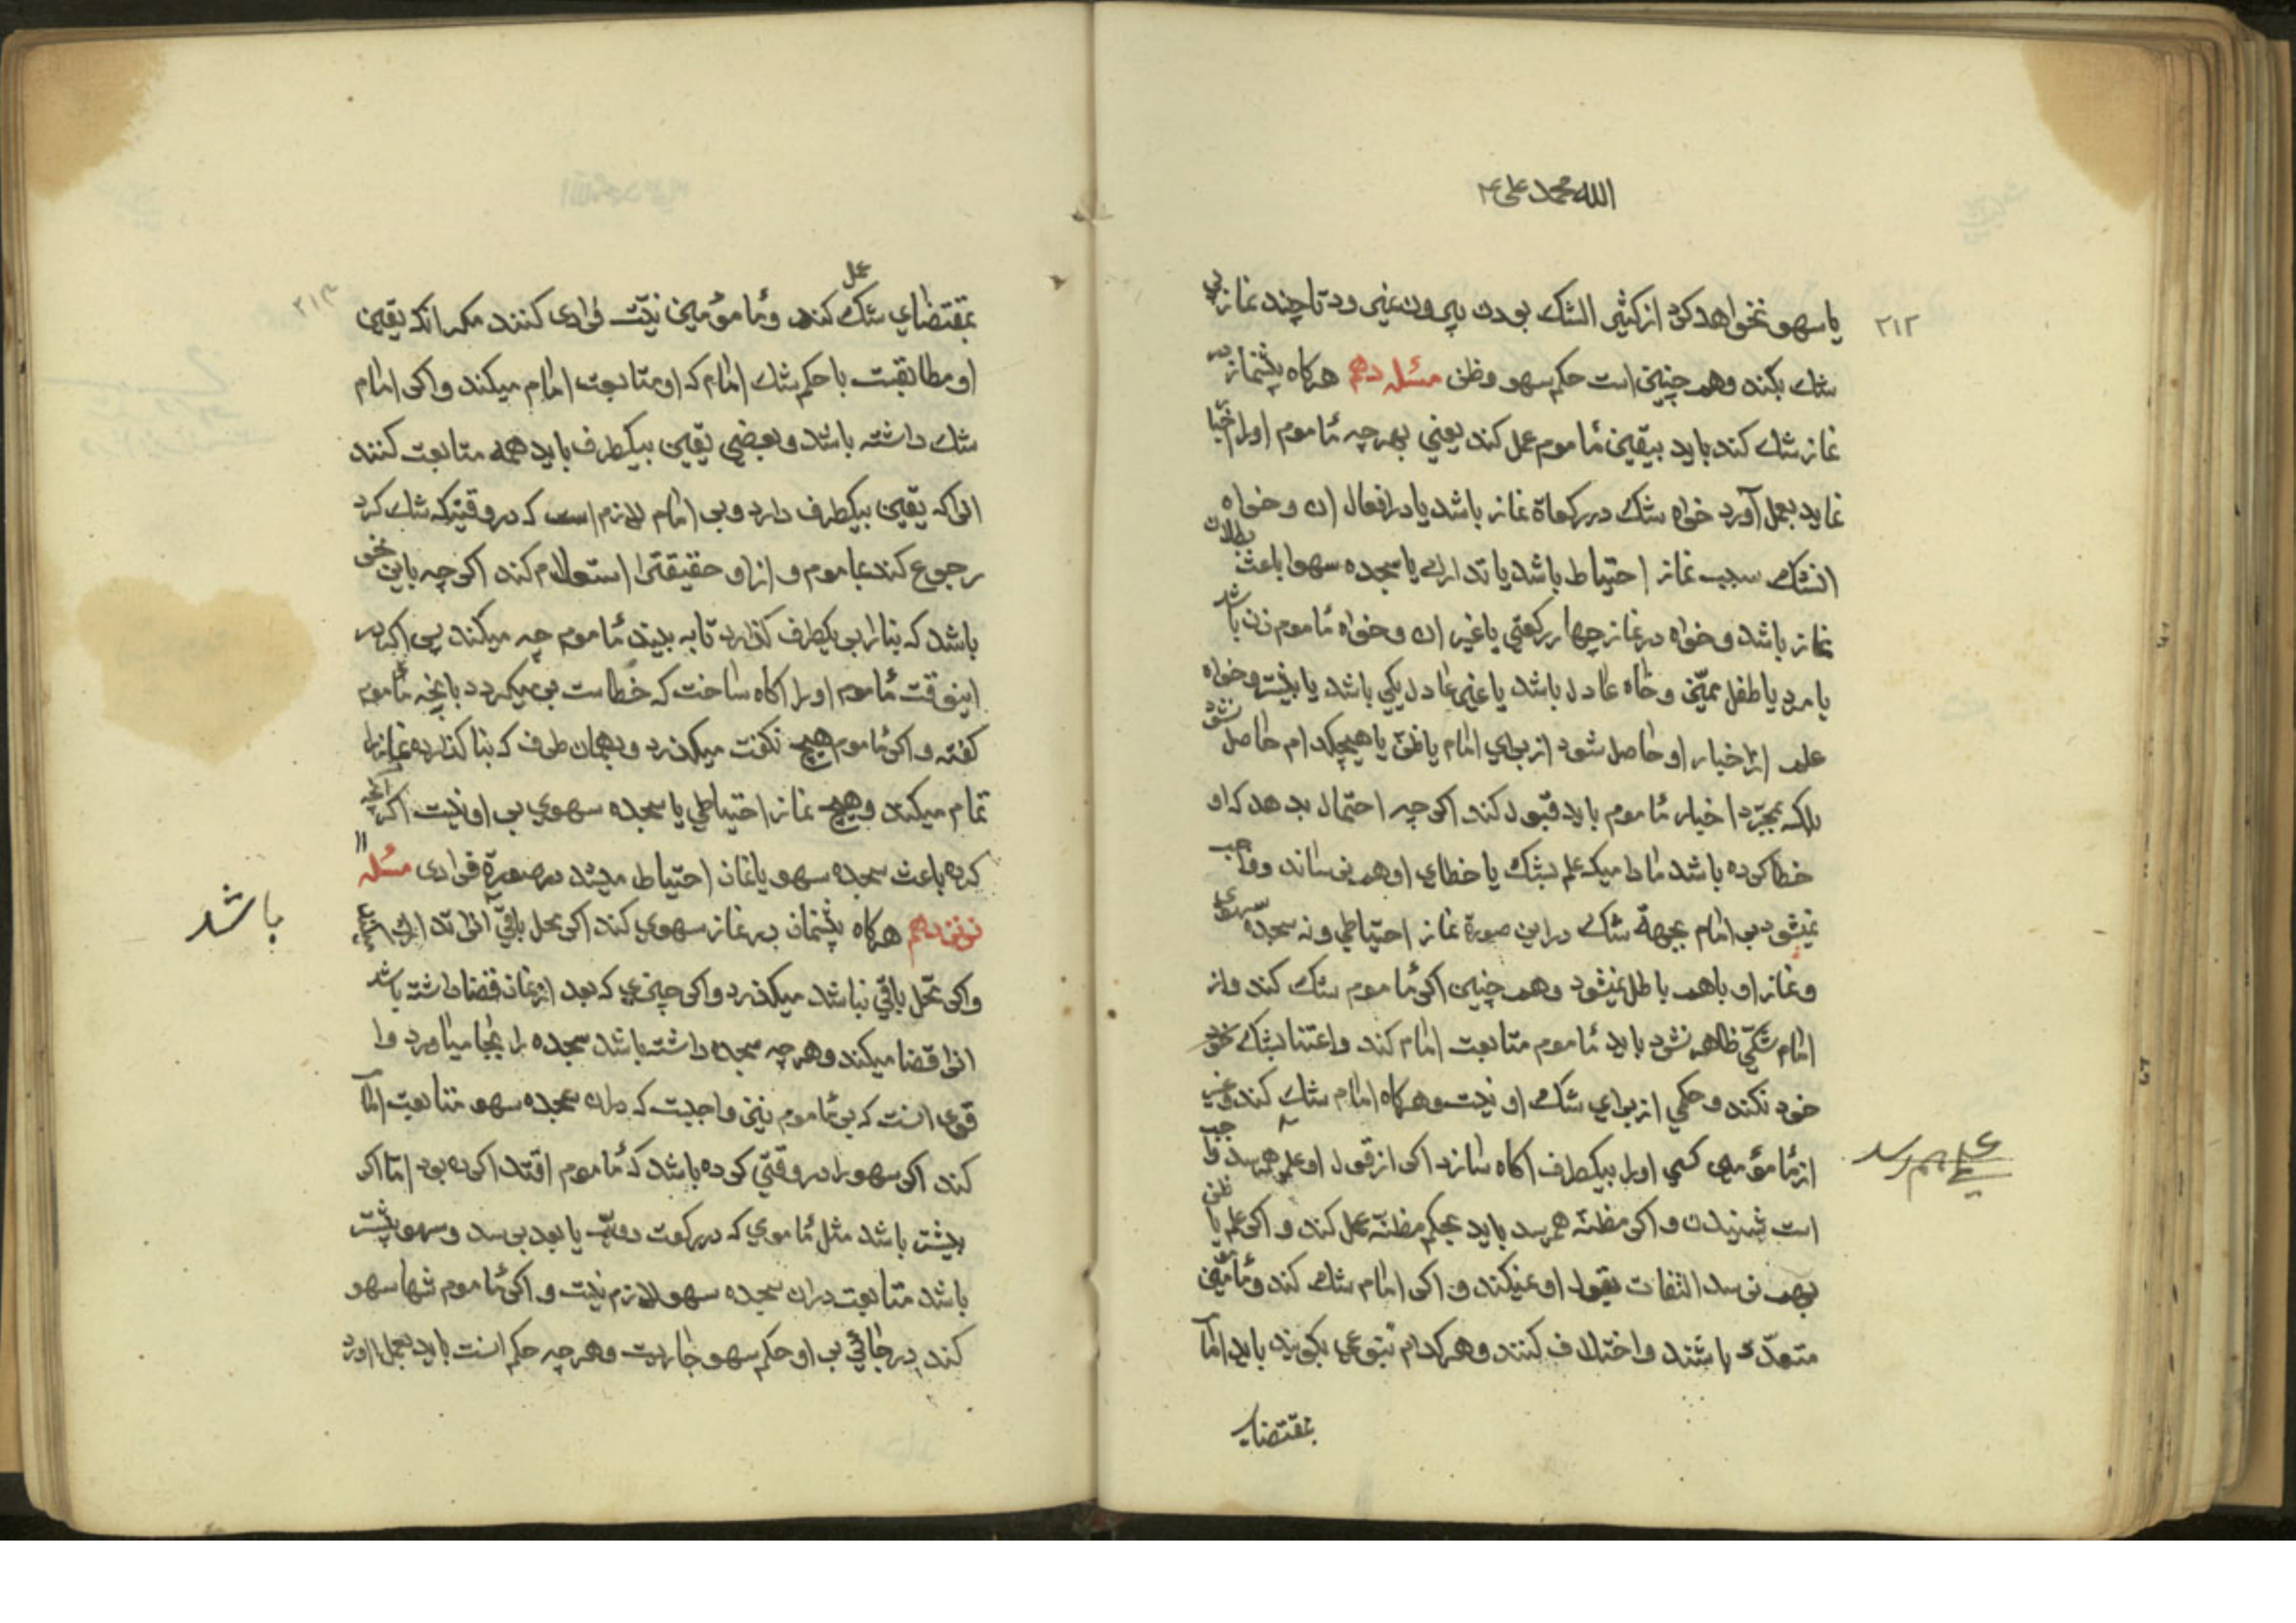 الله محمد علی ۴
۲۱۲
یا سهو نخواهد کرد از کثیر الشک بودن بیرون نمیرود تا چند نماز بی
شك بکند وهم چنین است حکم سهو وظن مسئله دهم هرگاه پیشنماز در
نماز شك کند باید بیقین مأموم عمل کند یعنی بهر چه مأموم اورا خبا
نماید بعمل آورد خواه شك در رکعاة نماز باشد یا در افعال ان و خواه
انشك سبب نماز احتیاط باشد یا تدارك یا سجده سهو یا باعث بطلان
نماز باشد و خواه در نماز چهار رکعتی یا غیر ان و خواه مأموم زن باشد
یا مرد یا طفل ممیّز و خاه عادل باشد یا غیر عادل یکی باشد یا بیشتر و خواه
علم از اخبار او حاصل شود از برای امام یا ظنّ یا هیچکدام حاصل نشود
بلکه بمجرّد اخبار مأموم باید قبول کند اگرچه احتمال بدهد که او
خطا کرده باشد مادامیکه علم بشك یا خطای او هم نرساند وواجب
نمیشود بر امام بجهة شك در این صورة نماز احتیاطی و نه سجده سهوی
و نماز او باهم باطل نمیشود وهم چنین اگر مأموم شك کند واز
امام شکّی ظاهر نشود باید مأموم متابعت امام کند واعتنا بشك
خود نکند و حکمی از برای شك او نیست وهرگاه امام شك کند وغیر
از مأمومین کسی اورا بیکطرف اگاه سازد اگر از قول او علم همرسد واجب
علم بهم رسد
است شنیدن و اگر مظنّه همرسد باید بحکم مظنّه عمل کند و اگر علم یا ظن
بهم نرسد التفات بقول او نمیکند و اگر امام شك کند و مأمومین
متعدّد باشند و اختلاف کنند وهر کدام بنوعی بگویند باید امام
بمقتضای
۲۱۳
بمقتضای شك عمل کند و مأمومین نیّت فرادی کنند مگر انکه یقین
او مطابقت با حکم شك امام که او متابعت امام میکند و اگر امام
شك داشته باشد و بعضی یقین بیکطرف باید همه متابعت کنند
انرا که یقین بیکطرف دارد و بر امام لازم است که در وقتیکه شك کرد
رجوع کند بماموم و از او حقیقترا استعلام کند اگرچه باین نحو
باشد که بنا را بر یکطرف گذارد تا به بیند مأموم چه میکند پس اگر در
اینوقت مأموم اورا اگاه ساخت که خطاست بر میگردد بانچه مأموم
گفته و اگر مأموم هیچ نگفت میگذرد وبهمان طرف که بنا گذارده نماز را
تمام میکند و هیچ نماز احتیاطی یا سجده سهوی بر او نیست اگر انچه
کرده باعث سجده سهو یا نماز احتیاط میشد در صورة فرادی مسئله
نوزدهم هرگاه پیشنماز در نماز سهوی کند اگر محل باقی
باشد
واگر محّل باقی نباشد میگذرد واگر چیزی که بعد از نماز قضا داشته باشد
انرا قضا میکند وهر چه سجده داشته باشد سجده را بجا میاورد وا
قوی انست که بر مأموم نیز واجبست که دران سجده سهو متابعت امام
کند اگر سهو را در وقتی کرده باشد که مأموم اقتدا کرده بود اما اگر
پیشتر باشد مثل مأمومی که در رکعت دویّم یا بعد برسد و سهو پیشتر
باشد متابعت دران سجده سهو لازم نیست و اگر مأموم تنها سهو
کند در جائی بر او حکم سهو جاریست وهر چه حکم انست باید بعمل اورد